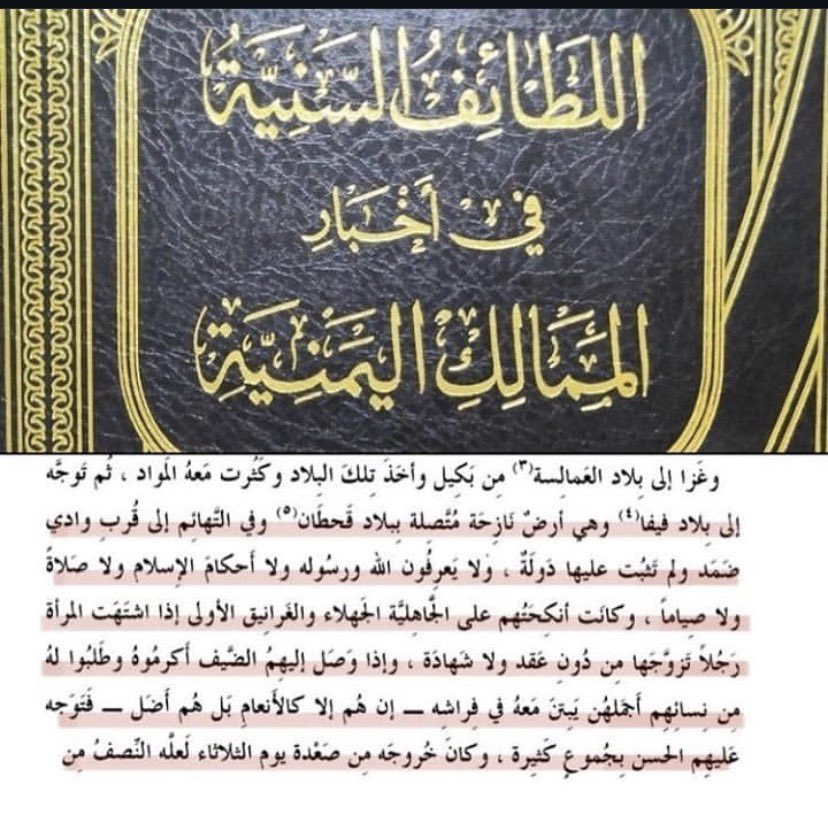 اللَّطَائِفُ السَّنِيَّةُ
فِي أَخْبَارِ
المَمَالِكِ اليَمَنِيَّةِ
وغَزا إلى بِلاد العَمالسة(٣) مِن بَكيل وأخَذَ تِلكَ البلاد وكَثُرت مَعهُ المَواد ، ثُم تَوجَّه
إلى بِلاد فيفا(٤) وهي أرضٌ نَازِحَة مُتَّصلة بِبلاد قَحطَان(٥) وفي التَّهائِم إلى قُربِ وادي
ضَمَد ولم تَثبُت عليها دَولَةٌ ، ولا يَعرِفُون الله ورسُوله ولا أَحكامَ الإسلام ولا صَلاةً
ولا صِياماً ، وكانَت أنكِحَتُهم على الجَاهليَّة الجَهلاء والغَرانيق الأولى إذا اشتَهَت المرأة
رَجُلاً تَزوَّجَها مِن دُونِ عَقد ولا شَهادَة ، وإذا وَصَل إليهِمُ الضَّيف أكرمُوهُ وطَلبُوا لهُ
مِن نِسائهِم أجمَلهُن يَبِتنَ مَعهُ في فِراشِه ــ إن هُم إلا كالأنعام بَل هُم أضَل ــ فَتَوجه
عَليهِم الحسن بجُموعٍ كَثيرة ، وكانَ خُروجَه مِن صَعْدة يوم الثلاثاء لَعلَّه النِّصفُ مِن